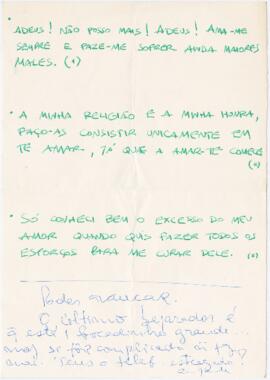 • ADEUS! NÃO POSSO MAIS! ADEUS! AMA-ME
SEMPRE E FAZE-ME SOFRER AINDA MAIORES
MALES. (*)
• A MINHA RELIGIÃO E A MINHA HONRA,
FAÇO-AS CONSISTIR UNICAMENTE EM
TE AMAR, JÁ QUE A AMAR-TE COMECEI
(*)
• SÓ CONHECI BEM O EXCESSO DO MEU
AMOR QUANDO QUIS FAZER TODOS OS
ESFORÇOS PARA ME CURAR DELE. (*)
Podes avançar.
O último separador é
q está 1 bocadinho grande...
mas se fôr complicado